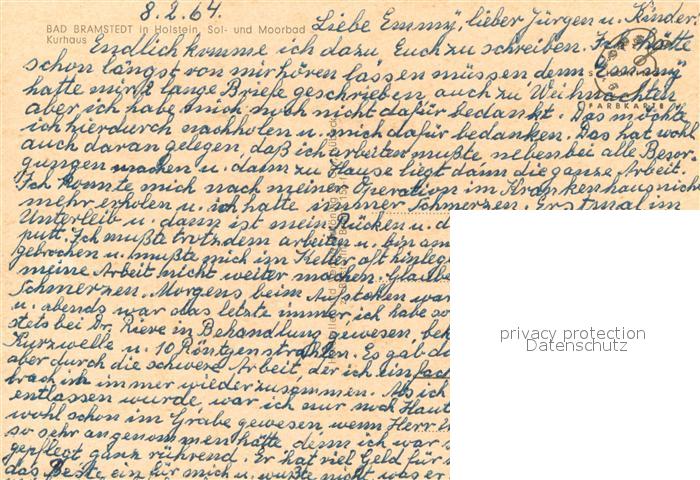 8.2.64.
Liebe Emmy, lieber Jürgen u. Kinder.
BAD BRAMSTEDT in Holstein, Sol- und Moorbad
Kurhaus
Endlich komme ich dazu Euch zu schreiben. Ich hätte
schon längst von mir hören lassen müssen denn Emmy
hatte mir 2 lange Briefe geschrieben auch zu Weihnachten
aber ich habe mich noch nicht dafür bedankt. Das möchte
ich hierdurch nachholen u. mich dafür bedanken. Das hat wohl
auch daran gelegen, daß ich arbeiten mußte, nebenbei alle Besor-
gungen machen u. dann zu Hause liegt dann die ganze Arbeit.
Ich konnte mich nach meiner Operation im Krankenhaus nicht
mehr erholen u. ich hatte immer Schmerzen. Erstmal im
Unterleib u. dann ist mein Rücken u. d
putt. Ich mußte trotzdem arbeiten u. bin am
gebrochen u. mußte mich im Keller oft hinleg
meine Arbeit nicht weiter machen. Glaube
Schmerzen. Morgens beim Aufstehen war
u. abends war das letzte immer, ich habe so
stets bei Dr. Rieve in Behandlung gewesen, bek
Kurzwelle u. 10 Röntgenstrahlen. Es gab da
aber durch die schwere Arbeit, der ich einfach
brach ich immer wieder zusammen. Als ich
entlassen wurde war ich nur noch Haut
wohl schon im Grabe gewesen wenn Herr
so sehr angenommen hätte denn ich war s
gepflegt ganz rührend. Er hat viel Geld für
das Beste ein für mich u. wußte nicht, was er
FARBKARTE
privacy protection
Datenschutz